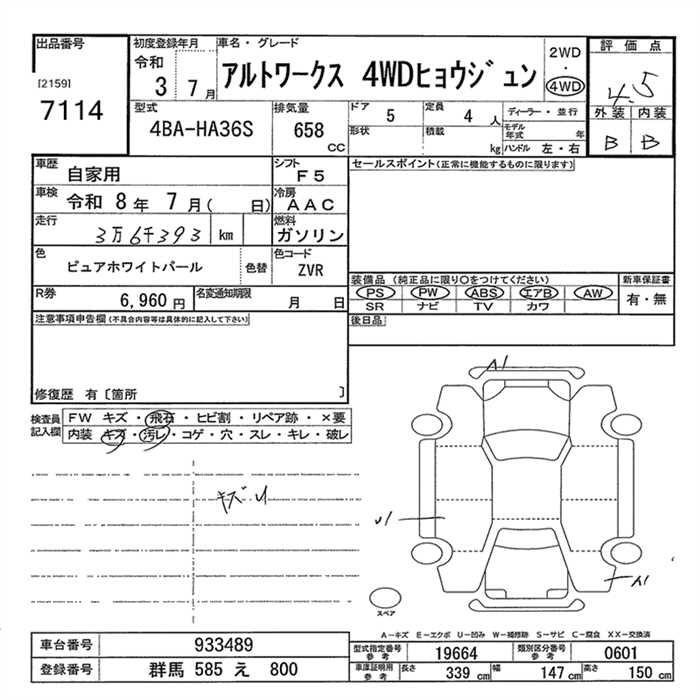 出品番号
[2159]
7114
初度登録年月
令和
3 7月
車名・グレード
アルトワークス 4WDヒョウジュン
2WD
・
4WD
評価点
4.5
外装 内装
B B
型式
4BA-HA36S
排気量
658
CC
ドア
5
定員
4 人
形状
積載
kg
ディーラー・並行
モデル年式 年
ハンドル 左・右
車歴
自家用
シフト
F5
車検
令和 8年 7月( 日)
冷房
AAC
走行
3万6千393 km
燃料
ガソリン
色
ピュアホワイトパール
色替
色コード
ZVR
R券
6,960 円
名変通知期限
月 日
セールスポイント(正常に機能するものに限ります)
装備品 (純正品に限り○をつけてください)
PS PW ABS エアB AW
SR ナビ TV カワ
新車保証書
有・無
後日品
注意事項申告欄(不具合内容等は具体的に記入して下さい)
修復歴 有〔箇所 〕
検査員記入欄
FW キズ・飛石・ヒビ割・リペア跡・×要
内装 キズ・汚レ・コゲ・穴・スレ・キレ・破レ
キズ U
スペア
A-キズ E-エクボ U-凹み W-補修跡 S-サビ C-腐食 XX-交換済
車台番号
933489
登録番号
群馬 585 え 800
型式指定番号
参考
19664
類別区分番号
参考
0601
車庫証明用
参考
長さ 339 cm
幅 147 cm
高さ 150 cm